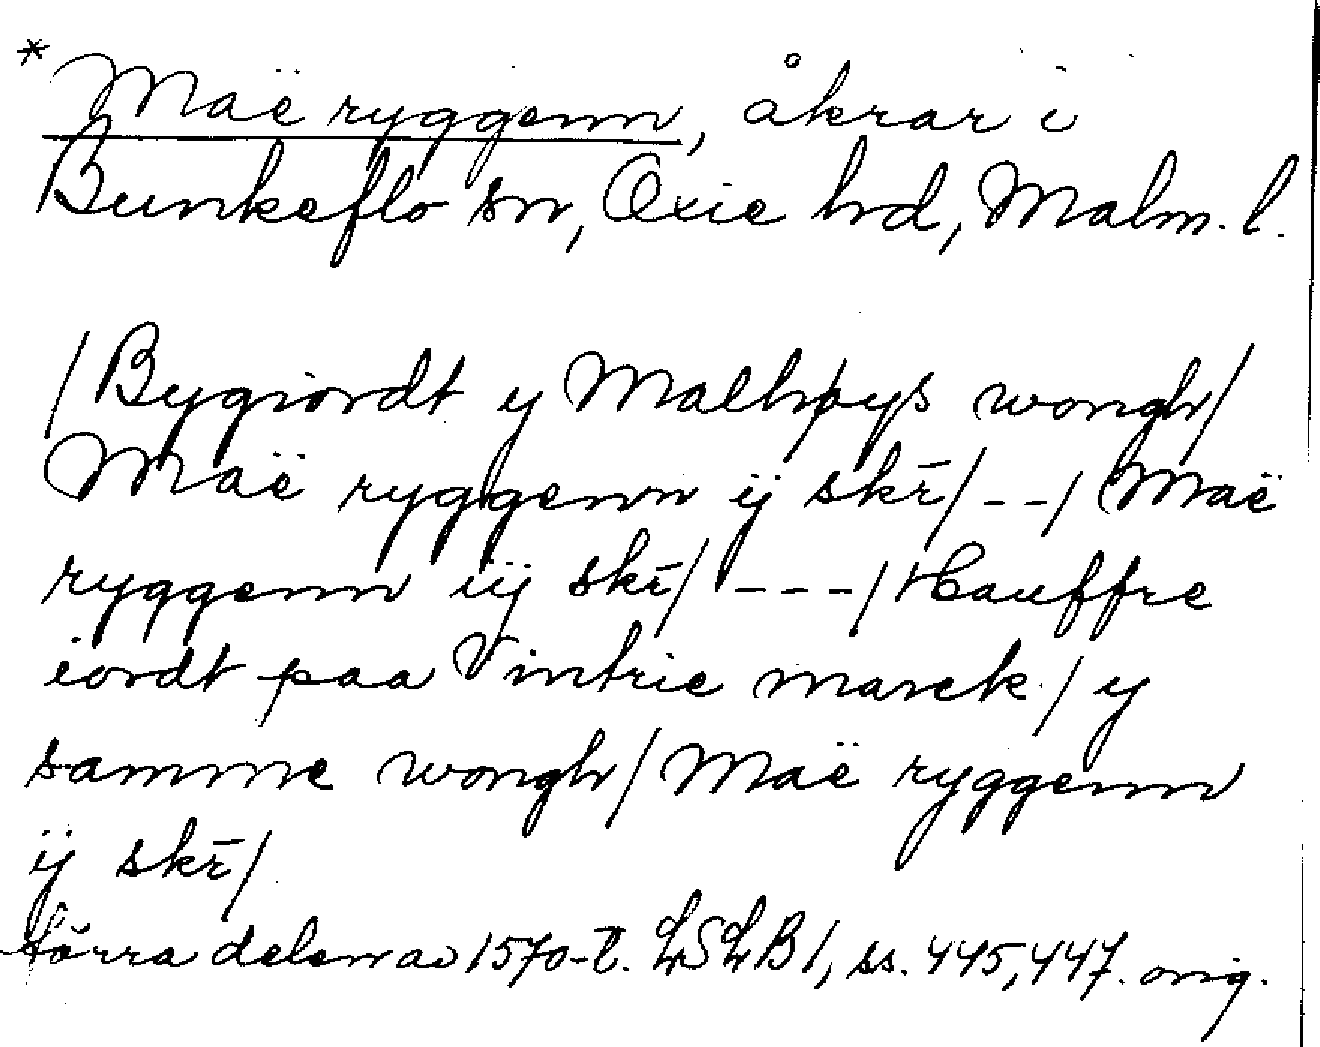 * Maë ryggenn, åkrar i
Bunkeflo sn, Oxie hd, Malm. l.
/Bygiordt y Malhpys wongh/
Maë ryggenn ij skr̄/--/ Maë
ryggenn iij skr̄/---/ Hauffre
iordt paa Vintrie marck / y
samme wongh/ Maë ryggenn
ij skr̄/
förra delen av 1570-t. LSLB 1, ss. 445, 447. orig.